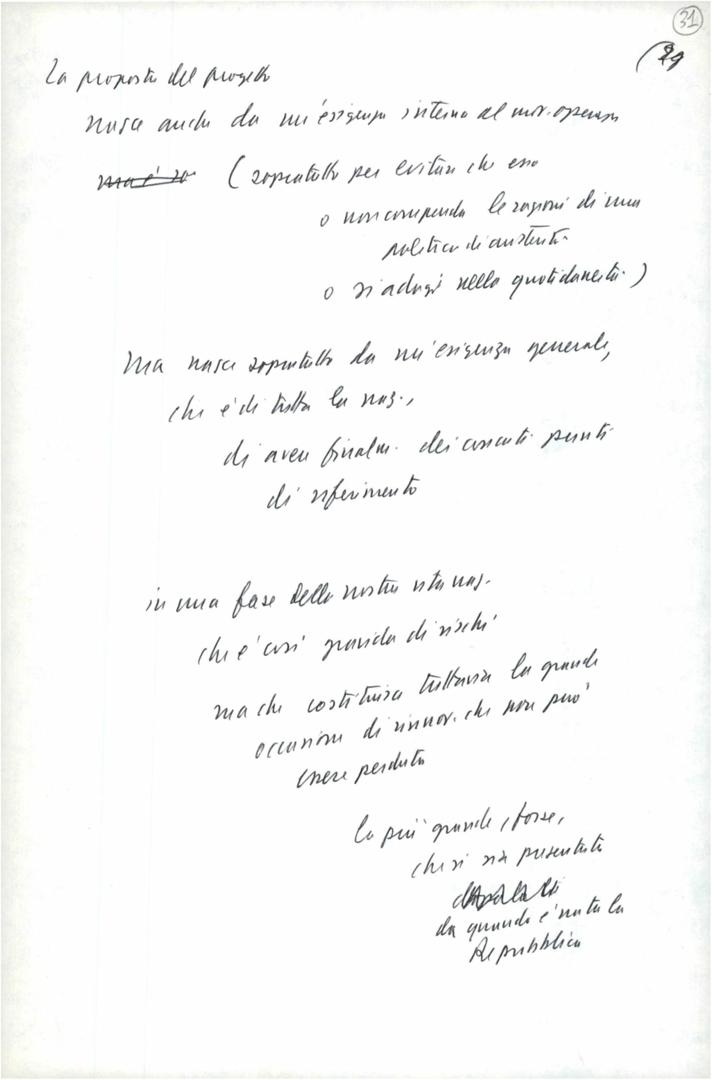 31
(29
La proposta del progetto
nasce anche da un'esigenza interna al mov. operaio
ma è so (sopratutto per evitare che esso
o non comprenda le ragioni di una
politica di austerità
o si adagi nella quotidianeità.)
Ma nasce sopratutto da un'esigenza generale,
che è di tutta la naz.,
di avere finalm. dei concreti punti
di riferimento
in una fase della nostra vita naz.
che è così gravida di rischi
ma che costituisce tuttavia la grande
occasione di rinnov. che non può
essere perduta
la più grande, forse,
che si sia presentata
da quando è nata la
Repubblica